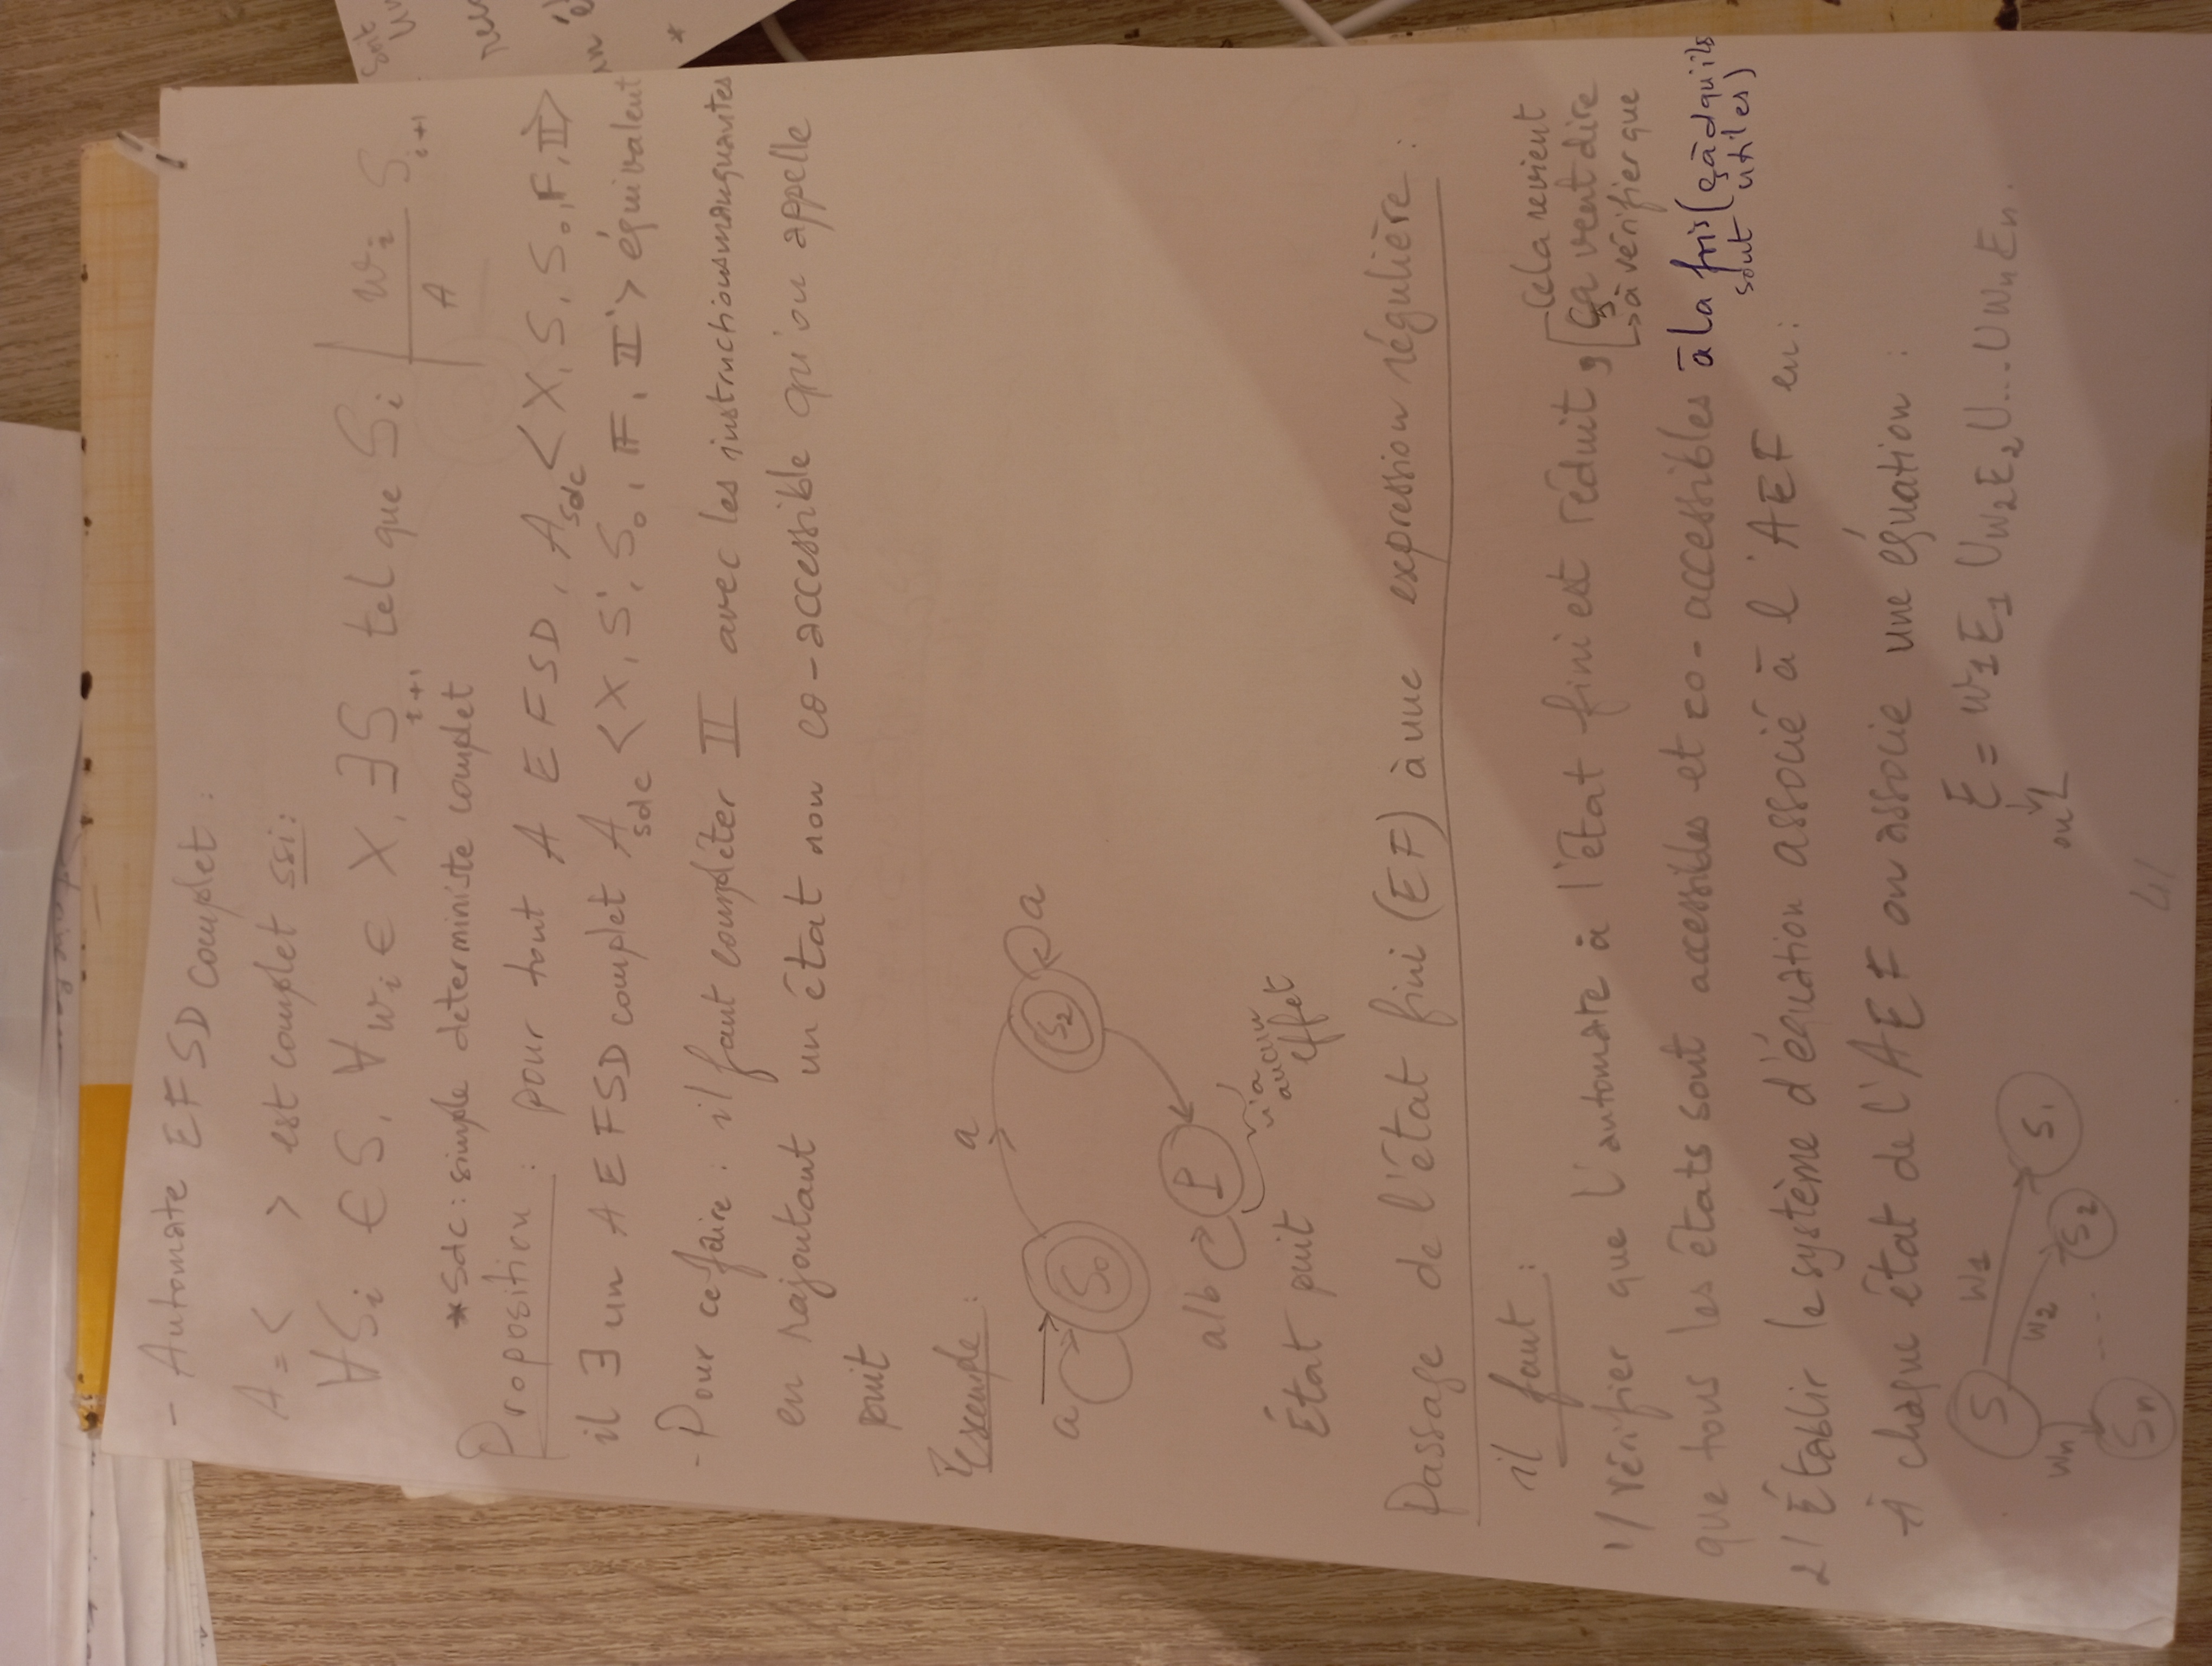 - Automate EFSD complet :
A = < > est complet ssi :
∀Si ∈ S, ∀wi ∈ X, ∃S i+1 tel que Si |wi/A Si+1
* sdc : simple deterministe complet
Proposition : pour tout A EFSD, Asdc <X, S, S0, F, II>
il ∃ un AEFSD complet Asdc <X, S', S0, F, II'> équivalent
- Pour ce faire : il faut compléter II avec les instructions manquantes
en rajoutant un état non co-accessible qu'on appelle
puit
Exemple :
a
a S0 S2 a
a/b P
n'a
aucun
effet
État puit
Passage de l'état fini (EF) à une expression régulière :
il faut :
1/ Vérifier que l'automate à l'état fini est réduit, ça veut dire
Cela revient
à vérifier que
que tous les états sont accessibles et co-accessibles à la fois (çàd qu'ils
sont utiles)
2/ Établir le système d'équation associé à l'AEF en :
À chaque état de l'AEF on associe une équation :
S w1 S1
w2 S2
wn Sn ....
E = w1E1 ∪ w2E2 ∪ .... ∪ wnEn.
ou L
4/